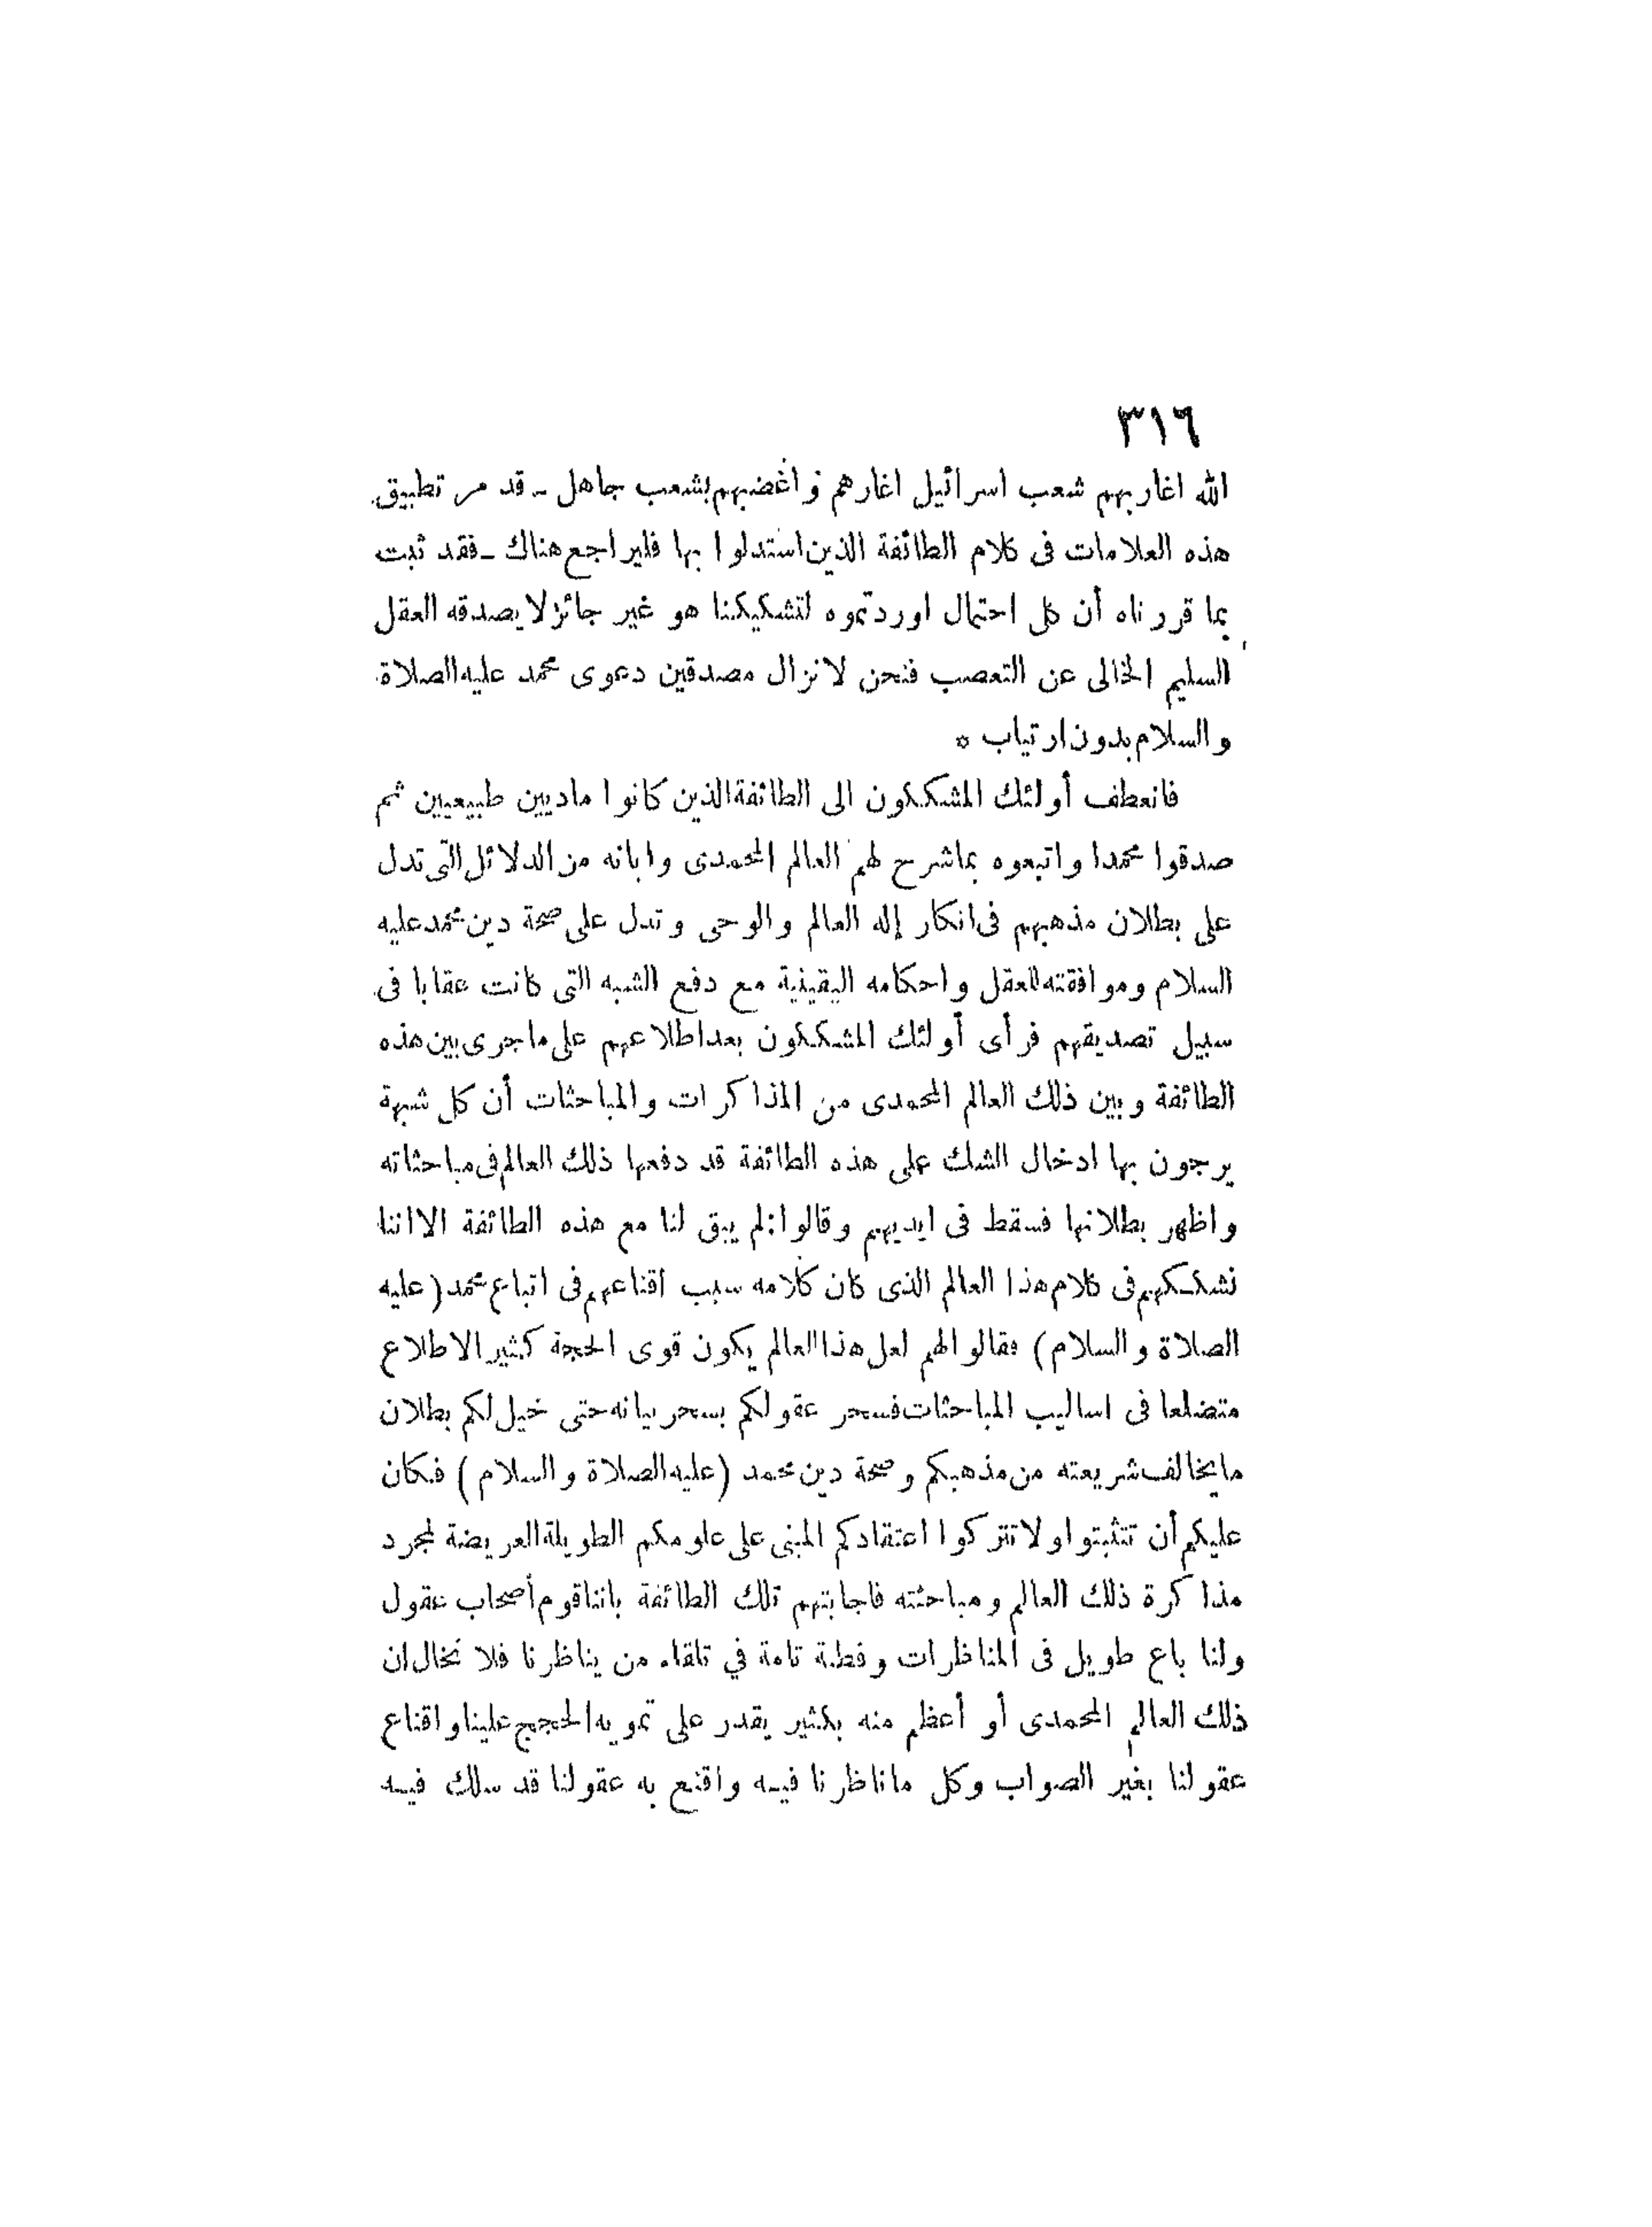 ٣١٦
الله اغار بهم شعب اسرائيل اغارهم واغضبهم بشعب جاهل ـ قد مر تطبيق
هذه العلامات فى كلام الطائفة الذين استدلوا بها فليراجع هناك ـ فقد ثبت
بما قررناه أن كل احتمال اوردتموه لتشكيكنا هو غير جائز لا يصدقه العقل
السليم الخالى عن التعصب فنحن لا نزال مصدقين دعوى محمد عليه الصلاة
والسلام بدون ارتياب *
فانعطف أولئك المشككون الى الطائفة الذين كانوا ماديين طبيعيين ثم
صدقوا محمدا واتبعوه بما شرح لهم العالم المحمدى وابانه من الدلائل التى تدل
على بطلان مذهبهم فى انكار إله العالم والوحى وتدل على صحة دين محمد عليه
السلام وموافقته للعقل واحكامه اليقينية مع دفع الشبه التى كانت عقابا فى
سبيل تصديقهم فرأى أولئك المشككون بعد اطلاعهم على ما جرى بين هذه
الطائفة وبين ذلك العالم المحمدى من المذاكرات والمباحثات أن كل شبهة
يرجون بها ادخال الشك على هذه الطائفة قد دفعها ذلك العالم فى مباحثاته
واظهر بطلانها فسقط فى ايديهم وقالوا : لم يبق لنا مع هذه الطائفة الا اننا
نشككهم فى كلام هذا العالم الذى كان كلامه سبب اقناعهم فى اتباع محمد ( عليه
الصلاة والسلام ) فقالوا لهم لعل هذا العالم يكون قوى الحجة كثير الاطلاع
متضلعا فى اساليب المباحثات فسحر عقولكم بسحر بيانه حتى خيل لكم بطلان
ما يخالف شريعته من مذهبكم وصحة دين محمد ( عليه الصلاة والسلام ) فكان
عليكم أن تتثبتوا ولا تتركوا اعتقادكم المبنى على علومكم الطويلة العريضة لمجرد
مذاكرة ذلك العالم ومباحثته فاجابتهم تلك الطائفة باننا قوم أصحاب عقول
ولنا باع طويل فى المناظرات وفطنة تامة في تلقاء من يناظرنا فلا نخال ان
ذلك العالم المحمدى أو أعظم منه بكثير يقدر على تمويه الحجج علينا واقناع
عقولنا بغير الصواب وكل ما ناظرنا فيه واقنع به عقولنا قد سلك فيه